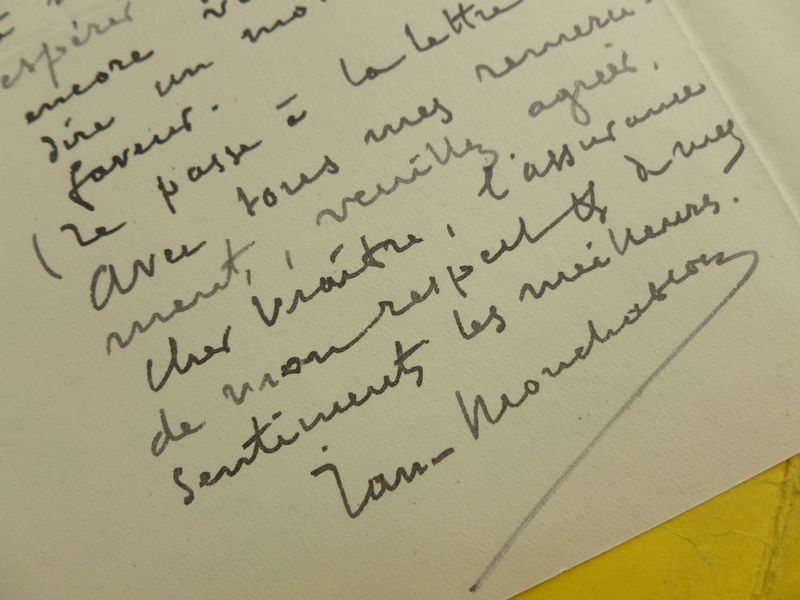 espérer
encore
dire un mo
faveur.
(Je passe à la lettre
Avec tous mes remercie-
ments, veuillez agréer,
cher Maître, l'assurance
de mon respect et de mes
sentiments les meilleurs.
Jan-Monchablon